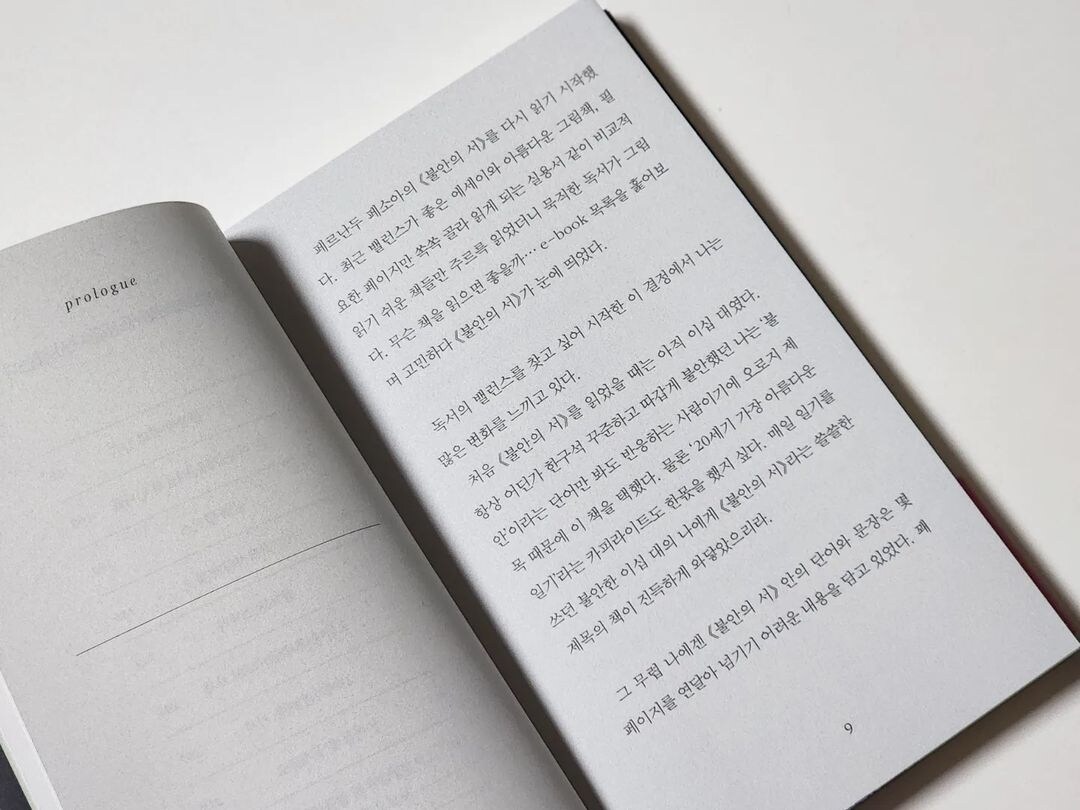 prologue
페르난두 페소아의 《불안의 서》를 다시 읽기 시작했
다. 최근 밸런스가 좋은 에세이와 아름다운 그림책, 필
요한 페이지만 쏙쏙 골라 읽게 되는 실용서 같이 비교적
읽기 쉬운 책들만 주르륵 읽었더니 묵직한 독서가 그립
다. 무슨 책을 읽으면 좋을까… e-book 목록을 훑어보
며 고민하다 《불안의 서》가 눈에 띄었다.
독서의 밸런스를 찾고 싶어 시작한 이 결정에서 나는
많은 변화를 느끼고 있다.
처음 《불안의 서》를 읽었을 때는 아직 이십 대였다.
항상 어딘가 한구석 꾸준하고 따갑게 불안했던 나는 ‘불
안’이라는 단어만 봐도 반응하는 사람이기에 오로지 제
목 때문에 이 책을 택했다. 물론 ‘20세기 가장 아름다운
일기’라는 카피라이트도 한몫을 했지 싶다. 매일 일기를
쓰던 불안한 이십 대의 나에게 《불안의 서》라는 쓸쓸한
제목의 책이 진득하게 와닿았으리라.
그 무렵 나에겐 《불안의 서》 안의 단어와 문장은 몇
페이지를 연달아 넘기기 어려운 내용을 담고 있었다. 페
9